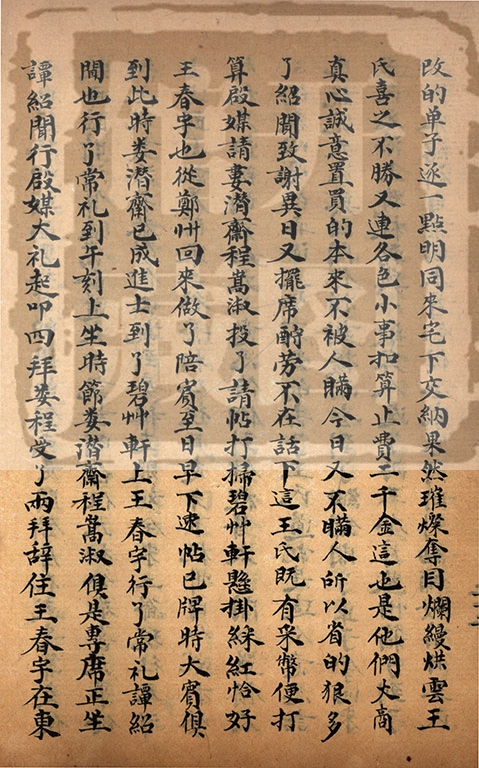 改的单子逐一點明同來宅下交納果然璀燦奪目爛縵烘雲王
氏喜之不勝又連各色小事扣算止費二千金這也是他們大商
真心誠意置買的本來不被人瞞今日又不瞞人所以省的狠多
了紹聞致謝異日又擺席酧劳不在話下這王氏既有采幣便打
算啟媒請婁潛齋程嵩淑投了請帖打掃碧艸軒懸掛綵紅恰好
王春宇也從鄭州回來做了陪賓至日早下速帖巳牌時大賓俱
到此時娄潛齋已成進士到了碧艸軒上王春宇行了常礼譚紹
聞也行了常礼到午刻上坐時節娄潛齋程嵩淑俱是專席正坐
譚紹聞行啟媒大礼起叩四拜娄程受了両拜辞住王春宇在東